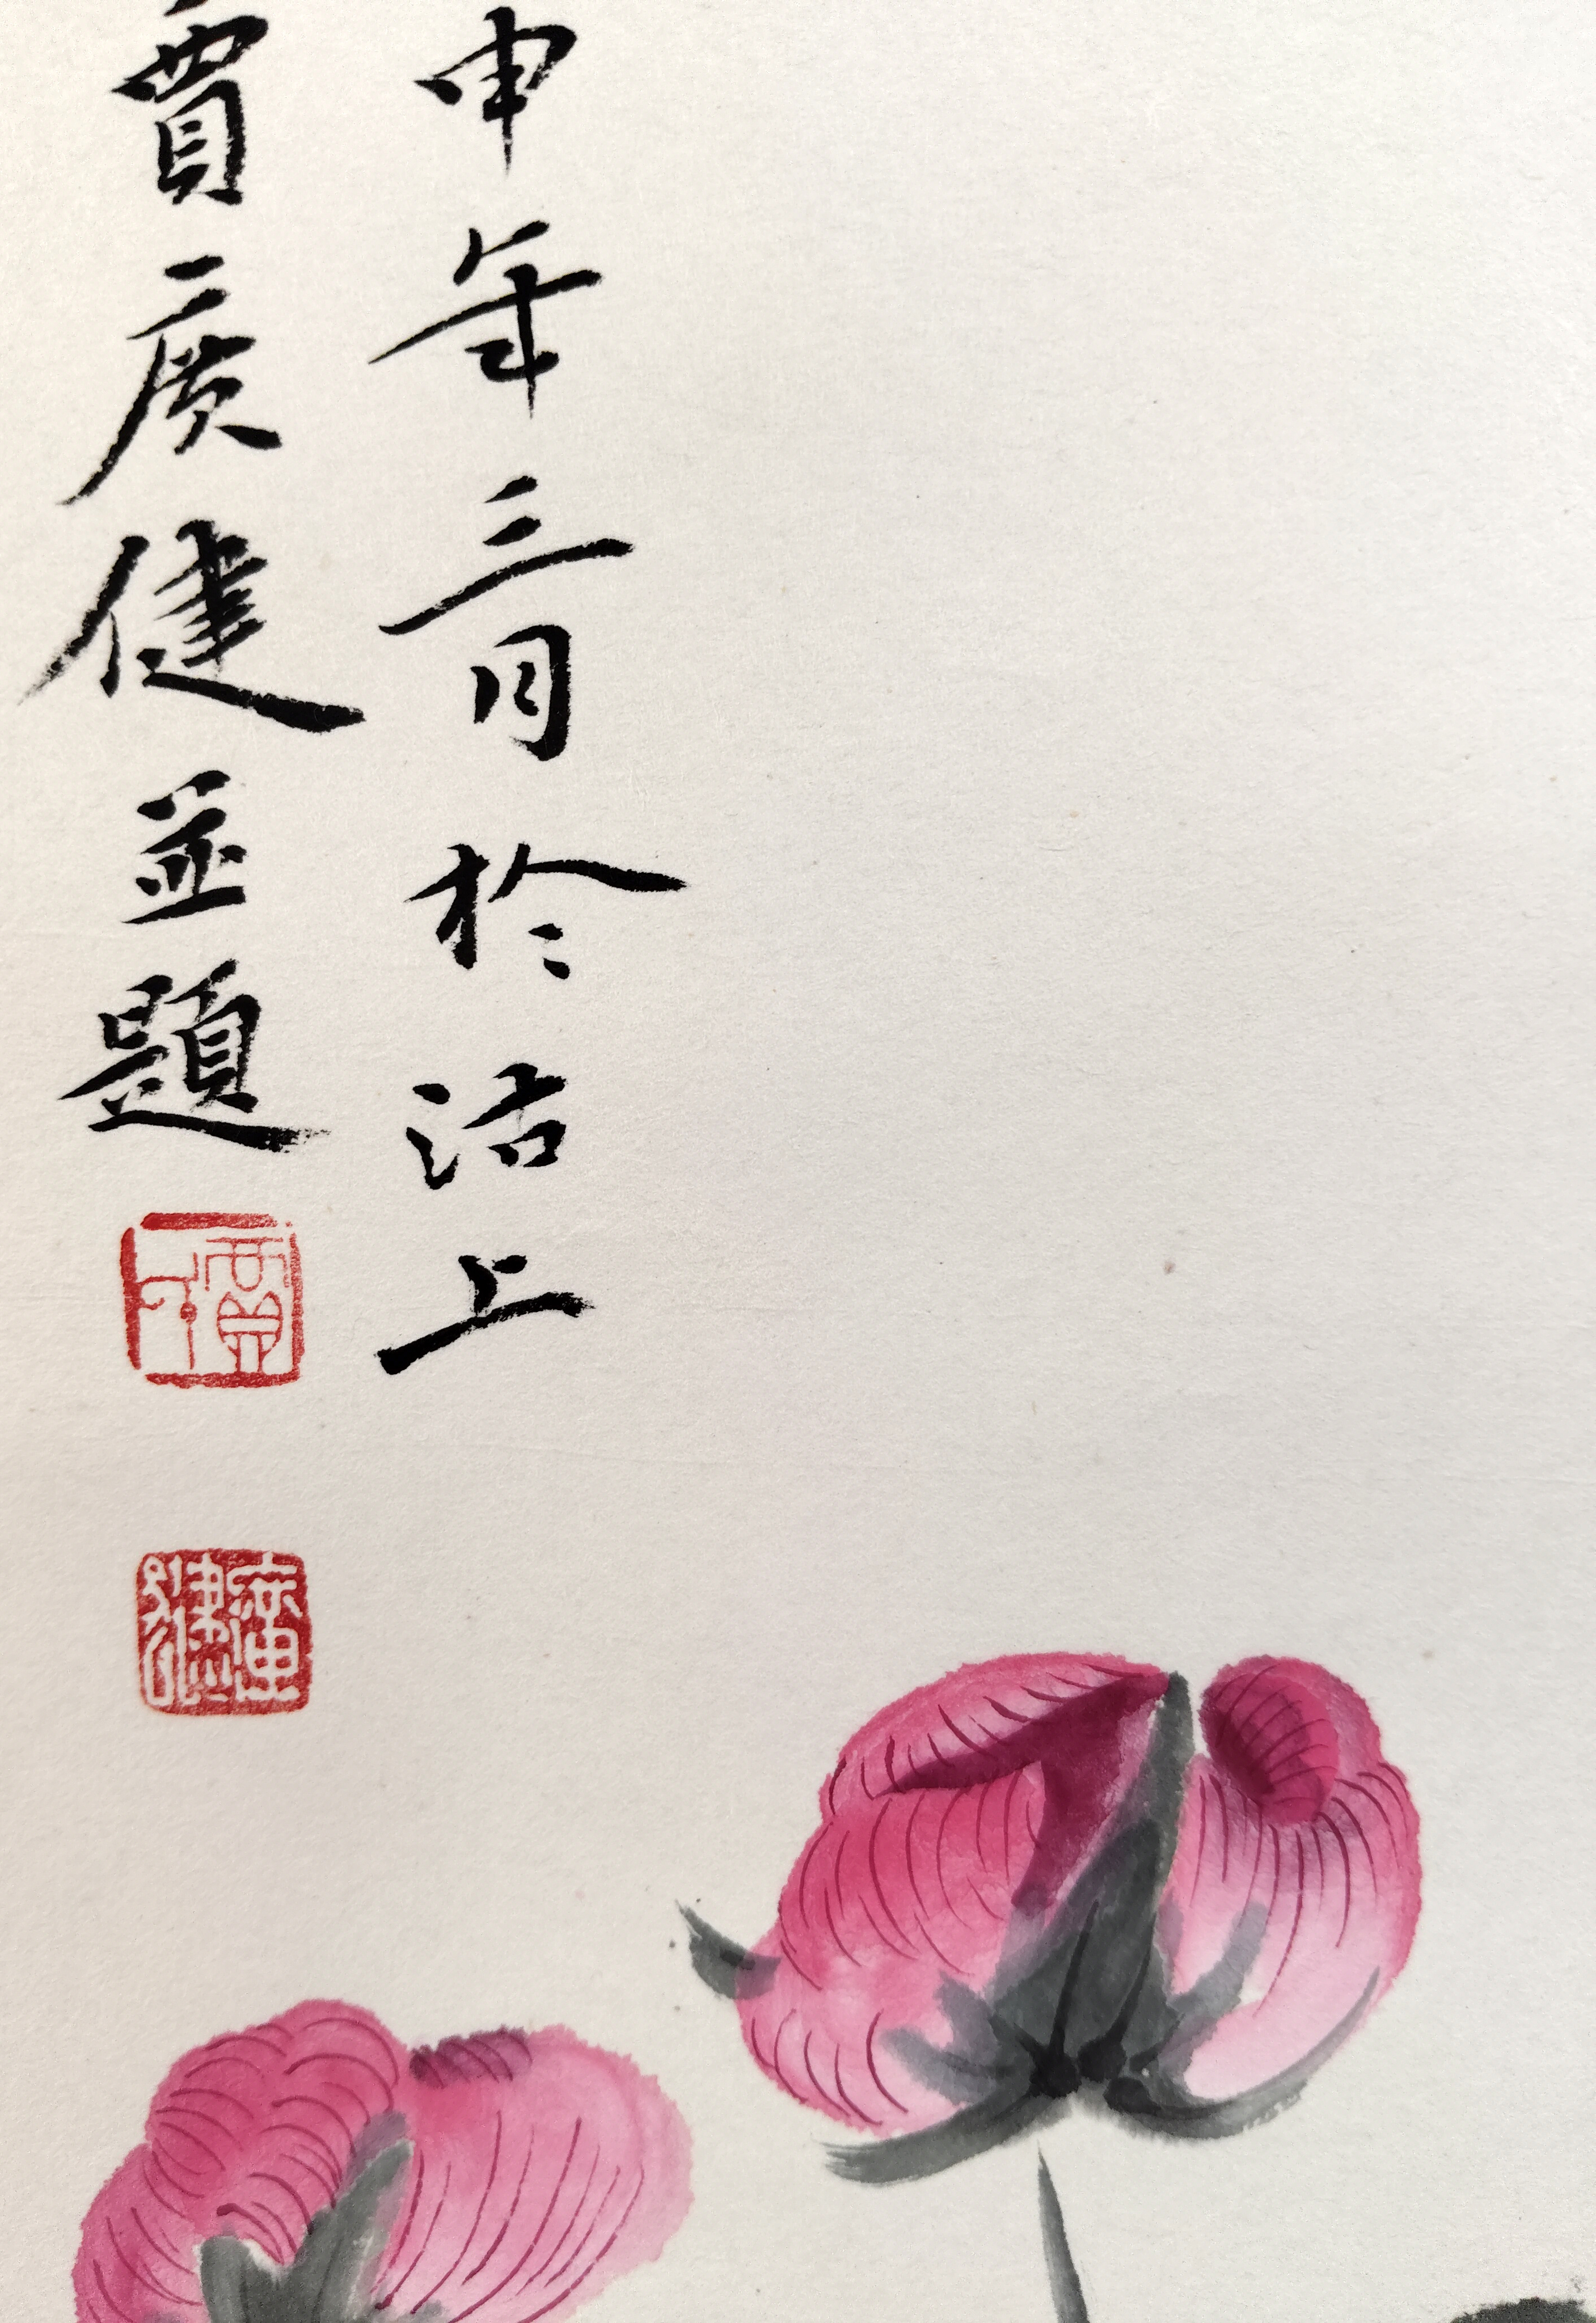 申年三月於沽上
賈廣健並題